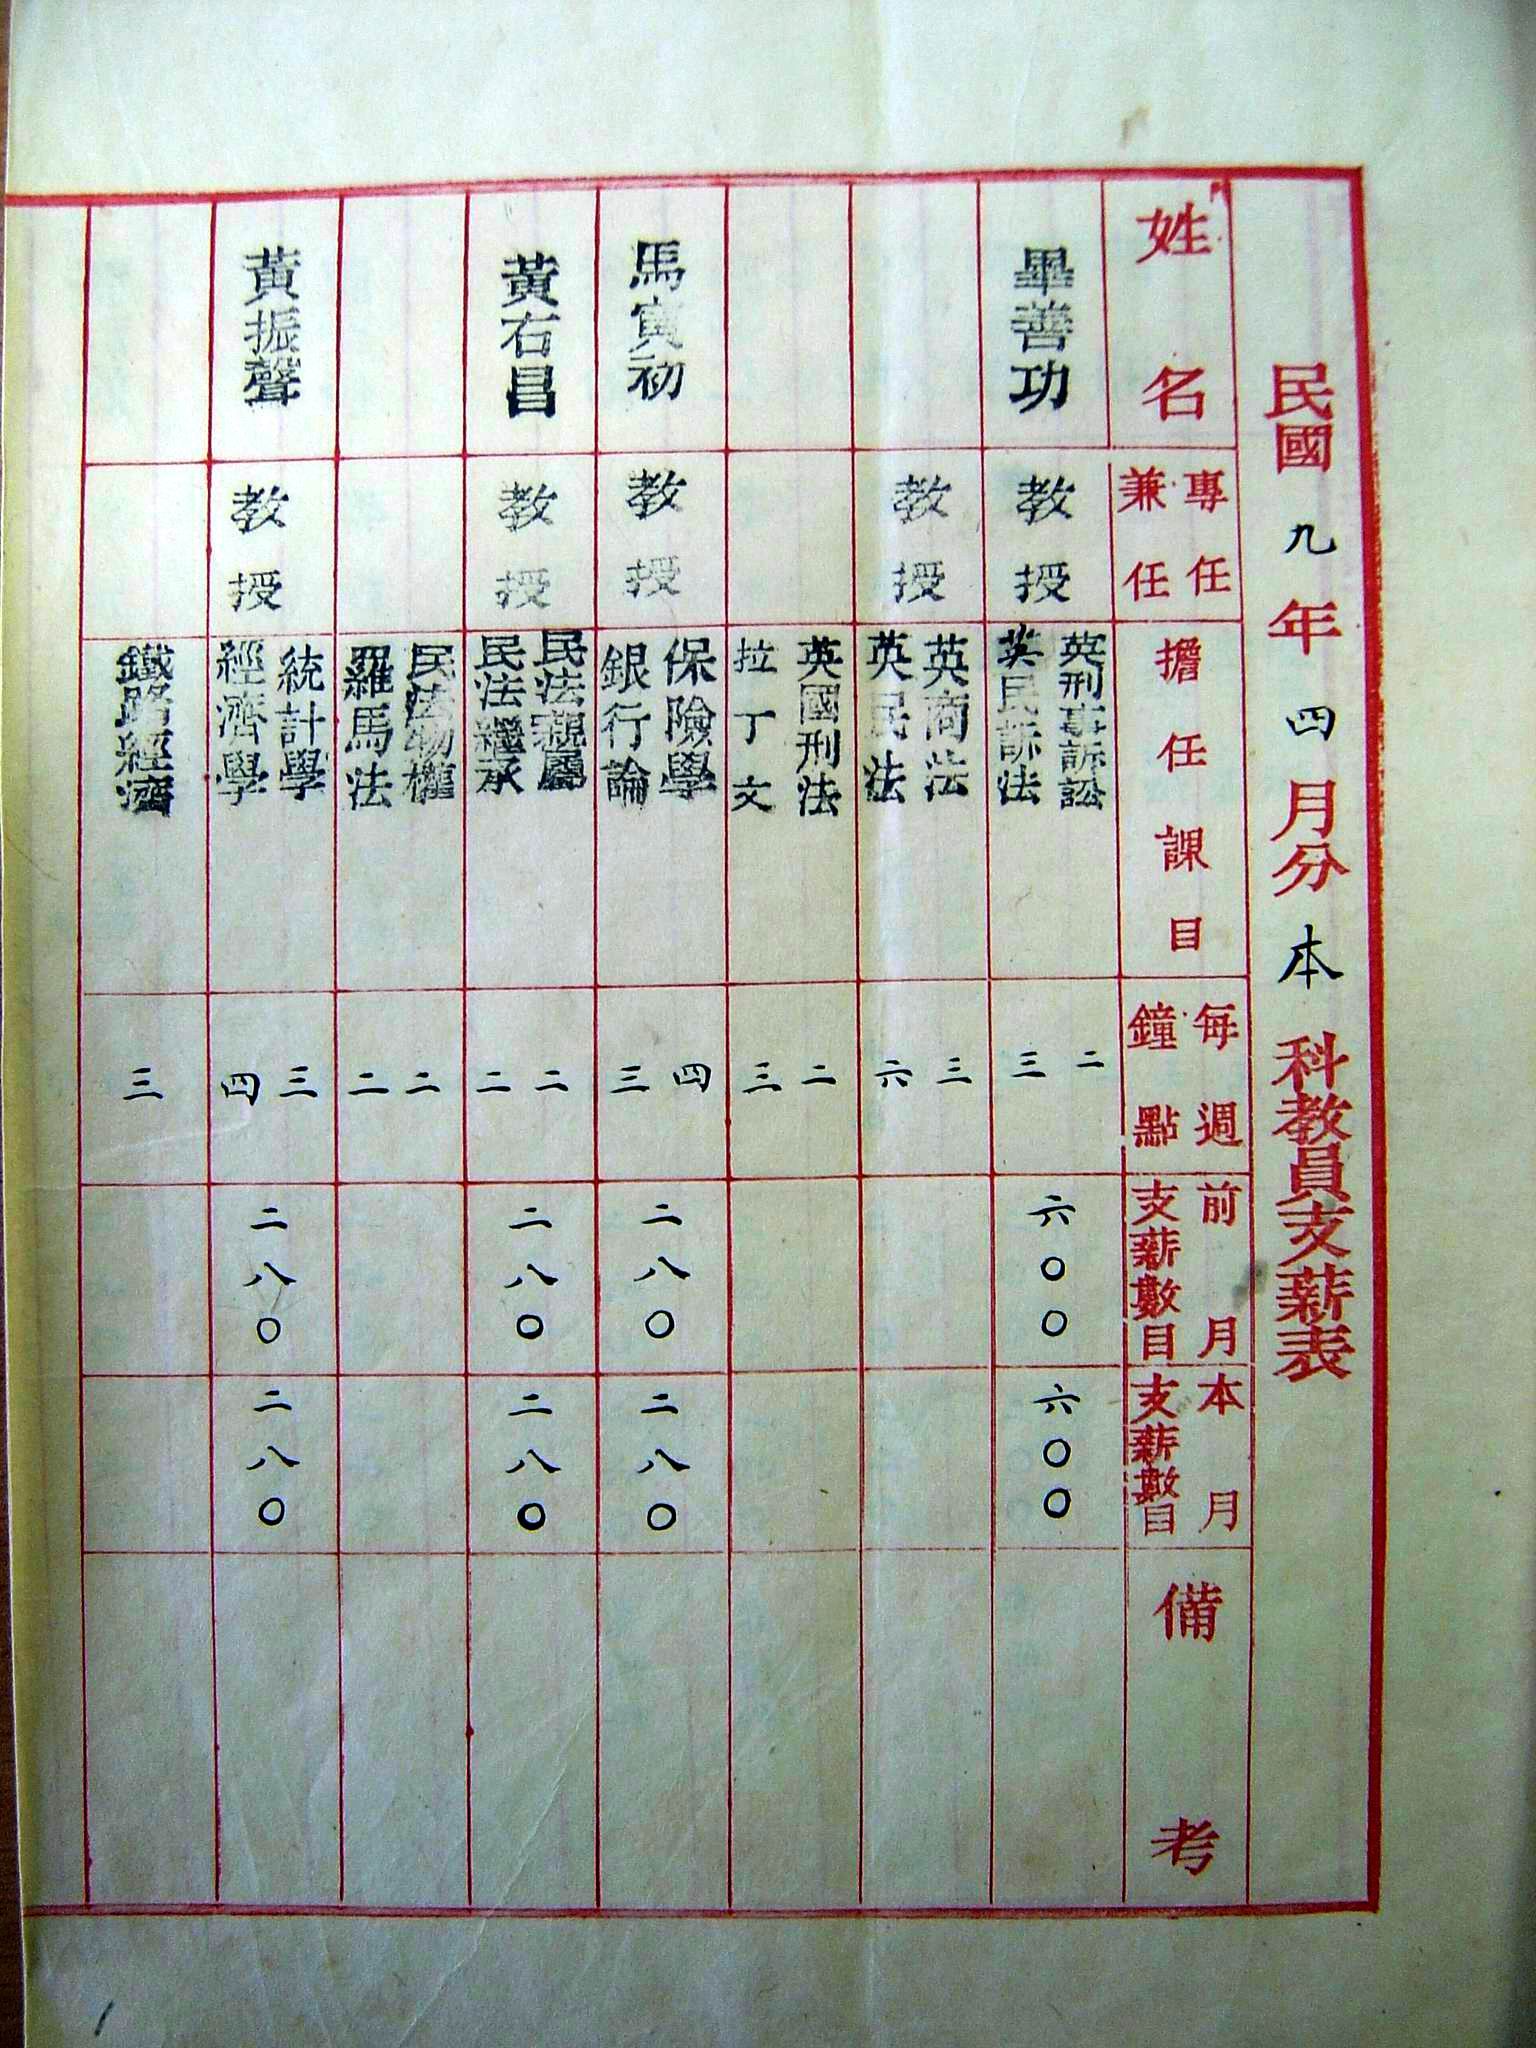 民國九年四月分本科教員支薪表
姓名
專任
兼任
擔任課目
每週
鐘點
前月
支薪數目
本月
支薪數目
備考
畢善功
教授
英刑事訴訟
英民訴法
二
三
六〇〇
六〇〇
教授
英商法
英民法
三
六
英國刑法
拉丁文
二
三
馬寅初
教授
保險學
銀行論
四
三
二八〇
二八〇
黃右昌
教授
民法親屬
民法繼承
二
二
二八〇
二八〇
民法物權
羅馬法
二
二
黃振聲
教授
統計學
經濟學
三
四
二八〇
二八〇
鐵路經濟
三